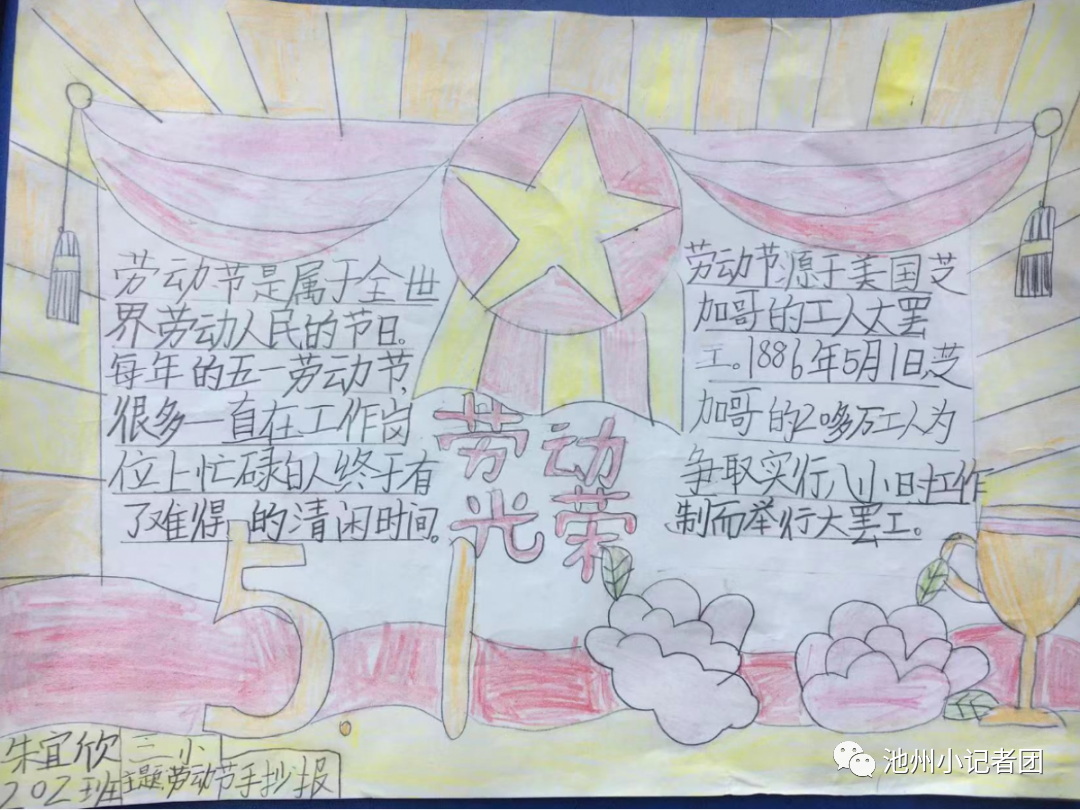 劳动节是属于全世
界劳动人民的节日。
每年的五一劳动节,
很多一直在工作岗
位上忙碌的人终于有
了难得的清闲时间。
劳动
光荣
劳动节源于美国芝
加哥的工人大罢
工。1886年5月1日,芝
加哥的20多万工人为
争取实行八小时工作
制而举行大罢工。
5.1
朱宜欣 三小
202班 主题:劳动节手抄报
池州小记者团